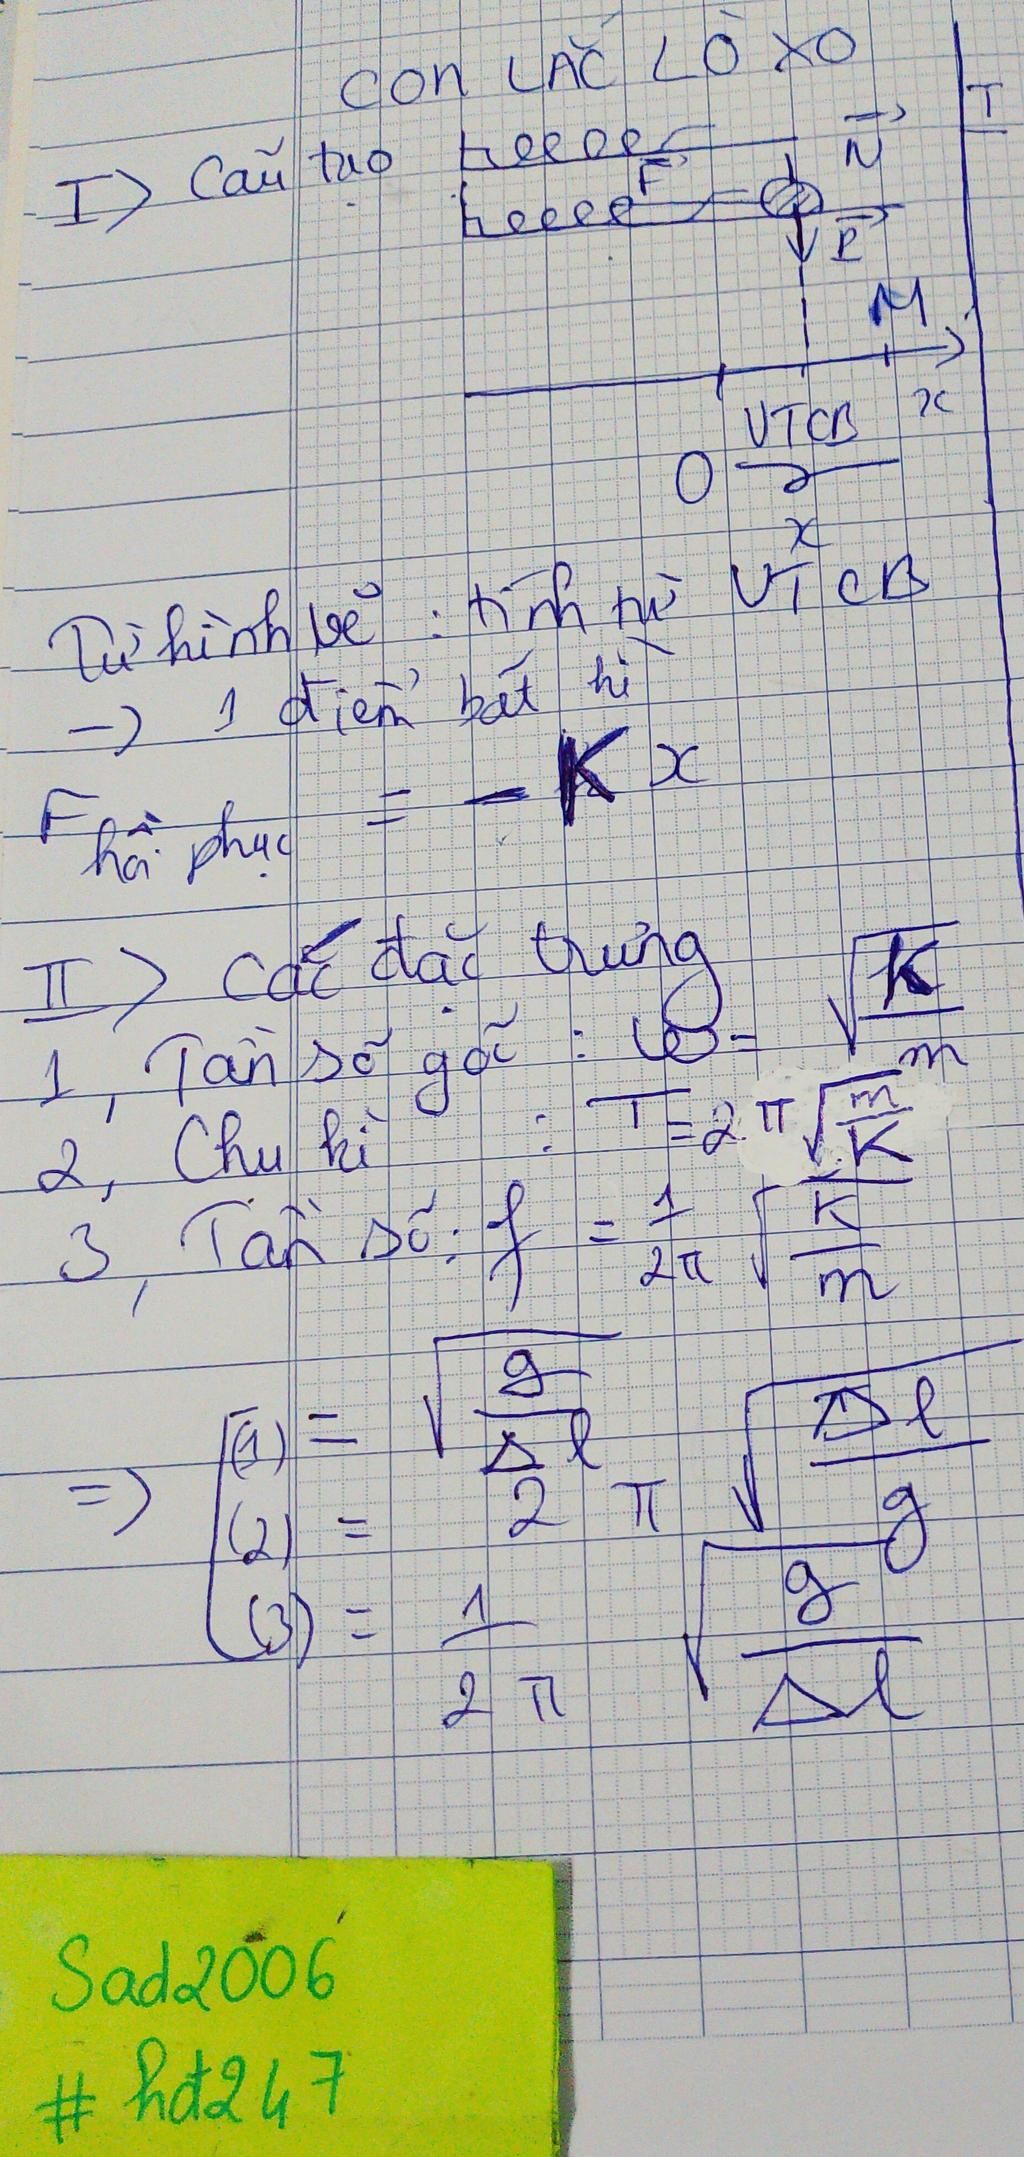 CON LẮC LÒ XO
I> Cấu tạo
N
F
P
M
x
O VTCB
x
Từ hình vẽ : tính từ VTCB
→ 1 điểm bất kì
F hồi phục = - K x
II> Các đặc trưng
1, Tần số góc : ω = √K/m
2, Chu kì : T = 2π √m/K
3, Tần số : f = 1/2π √K/m
=> (1) = √g/Δl
(2) = 2 π √Δl/g
(3) = 1/2π √g/Δl
T
Sad2006
# hđ247